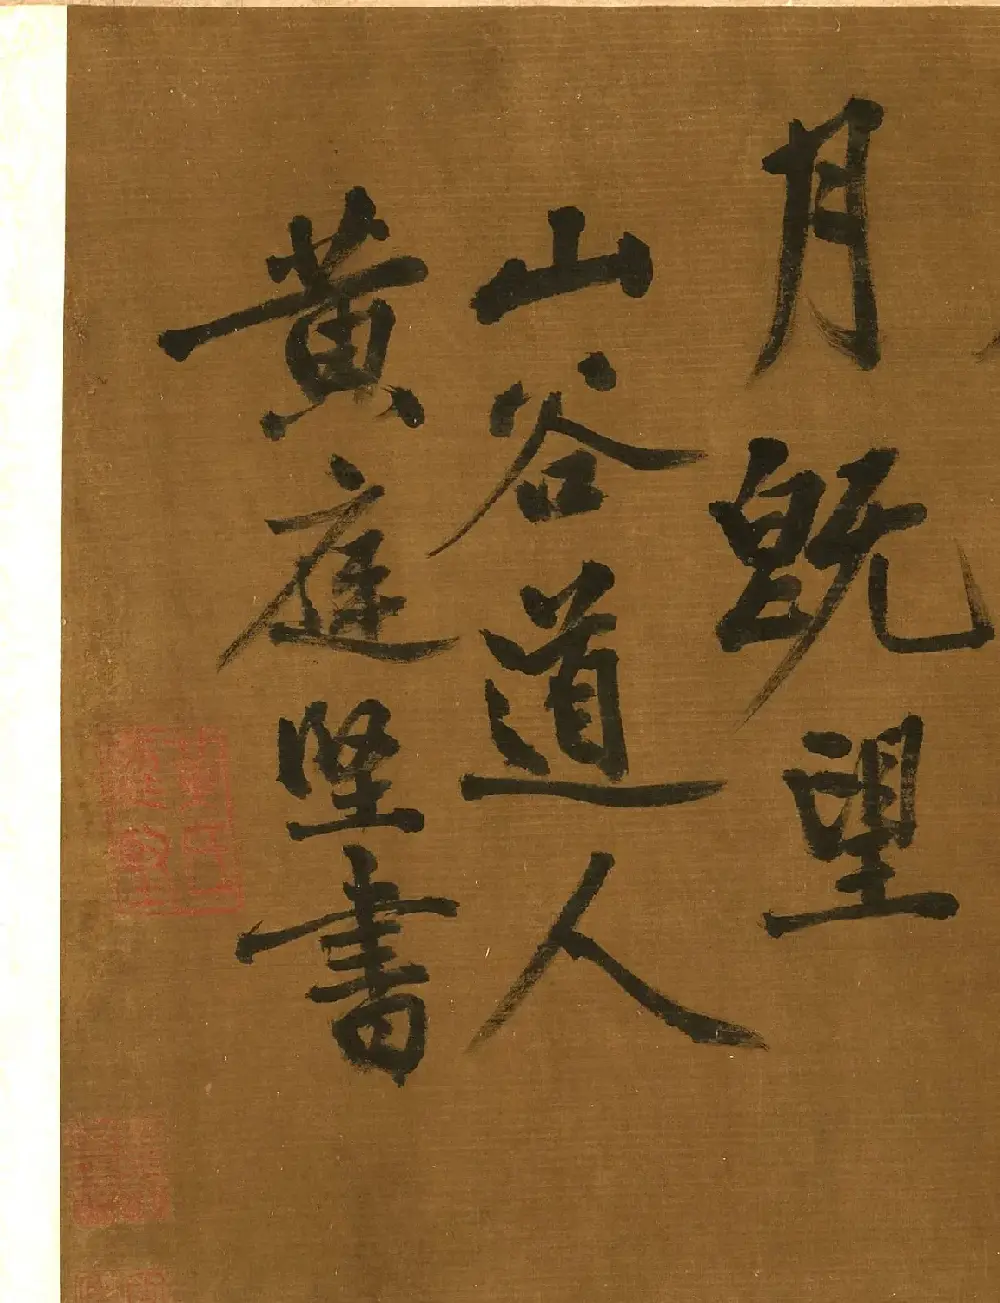 月既望
山谷道人
黃庭堅書